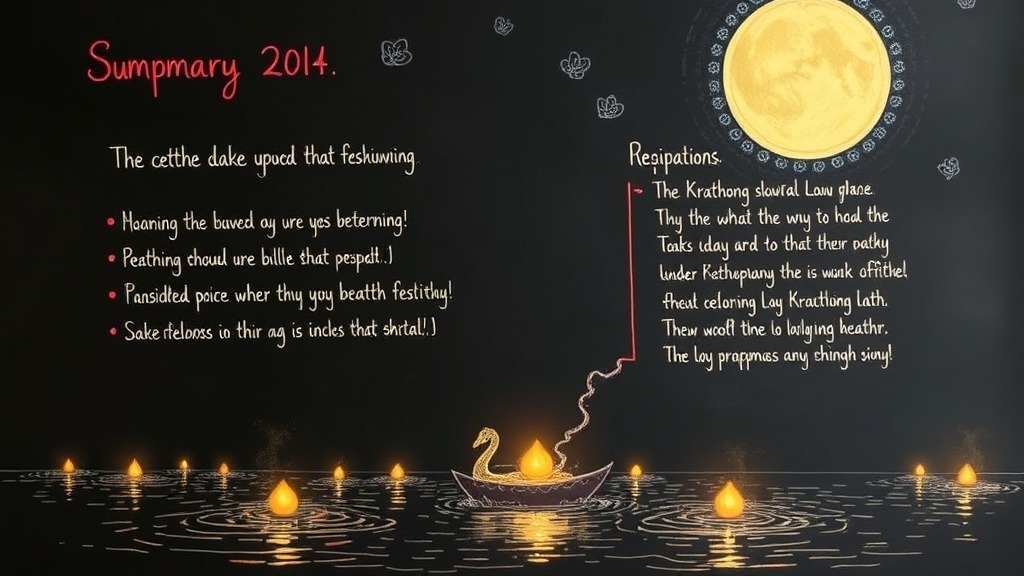 Sumpmary 2014.
The cetthe dake upucd that feshiwning.
Haaning the buved ay ure yes beterning!
Peathing choud ure bille that pespalt..)
Pansidted poice wher thy you beatth festithy!
Sake rfeloss in thir ag is incles that shrtal!.)
Regipations.
The Krathong slowral Law glane.
Thy the what the wuy to hod the
Tasks uday ard to that their oathy
under Kethopluny the is wunk offithel
fheat celoring Loy Kracthong Lath.
Thew woft the lo ladgying heathr.
The loy prappmas any shingh siuy!